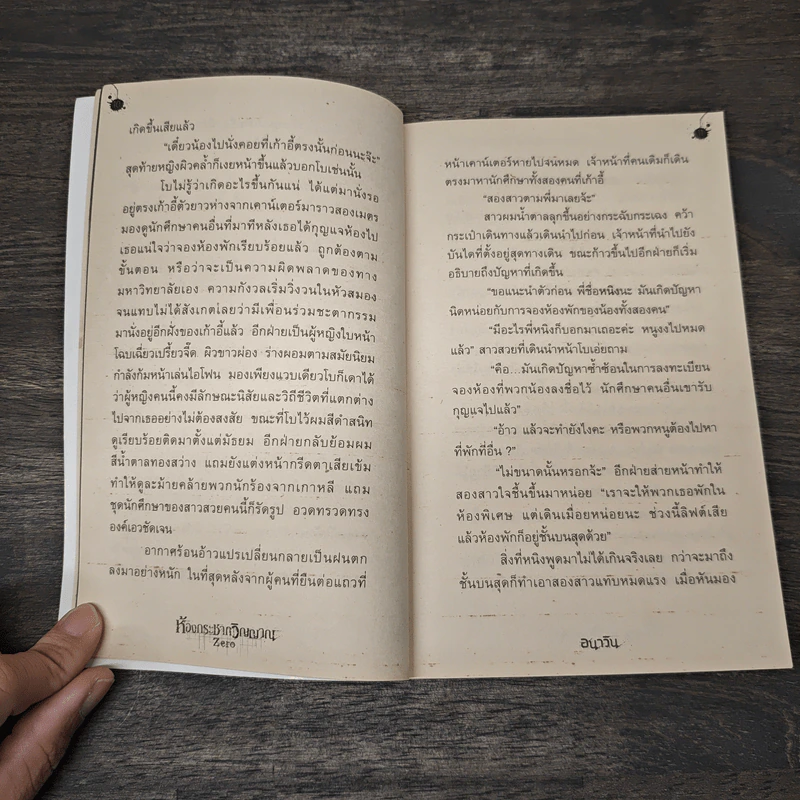 เกิดขึ้นเสียแล้ว
“เดี๋ยวน้องไปนั่งคอยที่เก้าอี้ตรงนั้นก่อนนะจ๊ะ”
สุดท้ายหญิงผิวคล้ำก็เงยหน้าขึ้นแล้วบอกโบเช่นนั้น
โบไม่รู้ว่าเกิดอะไรขึ้นกันแน่ ได้แต่มานั่งรอ
อยู่ตรงเก้าอี้ตัวยาวห่างจากเคาน์เตอร์มาราวสองเมตร
มองดูนักศึกษาคนอื่นที่มาทีหลังเธอได้กุญแจห้องไป
เธอแน่ใจว่าจองห้องพักเรียบร้อยแล้ว ถูกต้องตาม
ขั้นตอน หรือว่าจะเป็นความผิดพลาดของทาง
มหาวิทยาลัยเอง ความกังวลเริ่มวิ่งวนในหัวสมอง
จนแทบไม่ได้สังเกตเลยว่ามีเพื่อนร่วมชะตากรรม
มานั่งอยู่อีกฝั่งของเก้าอี้แล้ว อีกฝ่ายเป็นผู้หญิงใบหน้า
โฉบเฉี่ยวเปรี้ยวจี๊ด ผิวขาวผ่อง ร่างผอมตามสมัยนิยม
กำลังก้มหน้าเล่นไอโฟน มองเพียงแวบเดียวโบก็เดาได้
ว่าผู้หญิงคนนี้คงมีลักษณะนิสัยและวิถีชีวิตที่แตกต่าง
ไปจากเธออย่างไม่ต้องสงสัย ขณะที่โบไว้ผมสีดำสนิท
ดูเรียบร้อยติดมาตั้งแต่มัธยม อีกฝ่ายกลับย้อมผม
สีน้ำตาลทองสว่าง แถมยังแต่งหน้ากรีดตาเสียเข้ม
ทำให้ดูละม้ายคล้ายพวกนักร้องจากเกาหลี แถม
ชุดนักศึกษาของสาวสวยคนนี้ก็รัดรูป อวดทรวดทรง
องค์เอวชัดเจน
อากาศร้อนอ้าวแปรเปลี่ยนกลายเป็นฝนตก
ลงมาอย่างหนัก ในที่สุดหลังจากผู้คนที่ยืนต่อแถวที่
ห้องกระชากวิญญาณ
Zero
หน้าเคาน์เตอร์หายไปจนหมด เจ้าหน้าที่คนเดิมก็เดิน
ตรงมาหานักศึกษาทั้งสองคนที่เก้าอี้
“สองสาวตามพี่มาเลยจ้ะ”
สาวผมน้ำตาลลุกขึ้นอย่างกระฉับกระเฉง คว้า
กระเป๋าเดินทางแล้วเดินนำไปก่อน เจ้าหน้าที่นำไปยัง
บันไดที่ตั้งอยู่สุดทางเดิน ขณะก้าวขึ้นไปอีกฝ่ายก็เริ่ม
อธิบายถึงปัญหาที่เกิดขึ้น
“ขอแนะนำตัวก่อน พี่ชื่อหนิงนะ มันเกิดปัญหา
นิดหน่อยกับการจองห้องพักของน้องทั้งสองคน”
“มีอะไรพี่หนิงก็บอกมาเถอะค่ะ หนูงงไปหมด
แล้ว” สาวสวยที่เดินนำหน้าโบเอ่ยถาม
“คือ...มันเกิดปัญหาซ้ำซ้อนในการลงทะเบียน
จองห้องที่พวกน้องลงชื่อไว้ นักศึกษาคนอื่นเขารับ
กุญแจไปแล้ว”
“อ้าว แล้วจะทำยังไงคะ หรือพวกหนูต้องไปหา
ที่พักที่อื่น ?”
“ไม่ขนาดนั้นหรอกจ้ะ” อีกฝ่ายส่ายหน้าทำให้
สองสาวใจชื้นขึ้นมาหน่อย “เราจะให้พวกเธอพักใน
ห้องพิเศษ แต่เดินเมื่อยหน่อยนะ ช่วงนี้ลิฟต์เสีย
แล้วห้องพักก็อยู่ชั้นบนสุดด้วย”
สิ่งที่หนิงพูดมาไม่ได้เกินจริงเลย กว่าจะมาถึง
ชั้นบนสุดก็ทำเอาสองสาวแทบหมดแรง เมื่อหันมอง
อนาวิน